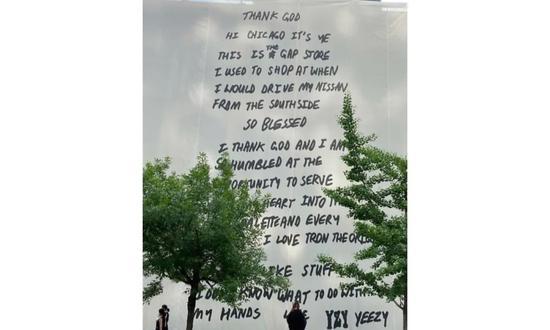 THANK GOD
HI CHICAGO IT'S YE
THIS IS THE GAP STORE
I USED TO SHOP AT WHEN
I WOULD DRIVE MY NISSAN
FROM THE SOUTHSIDE
SO BLESSED
I THANK GOD AND I AM
SO HUMBLED AT THE
OPPORTUNITY TO SERVE
HEART INTO
PALETTE AND EVERY
I LOVE TRON THE
LIKE STUFF
I DON'T KNOW WHAT TO DO WITH
MY HANDS YZY YEEZY